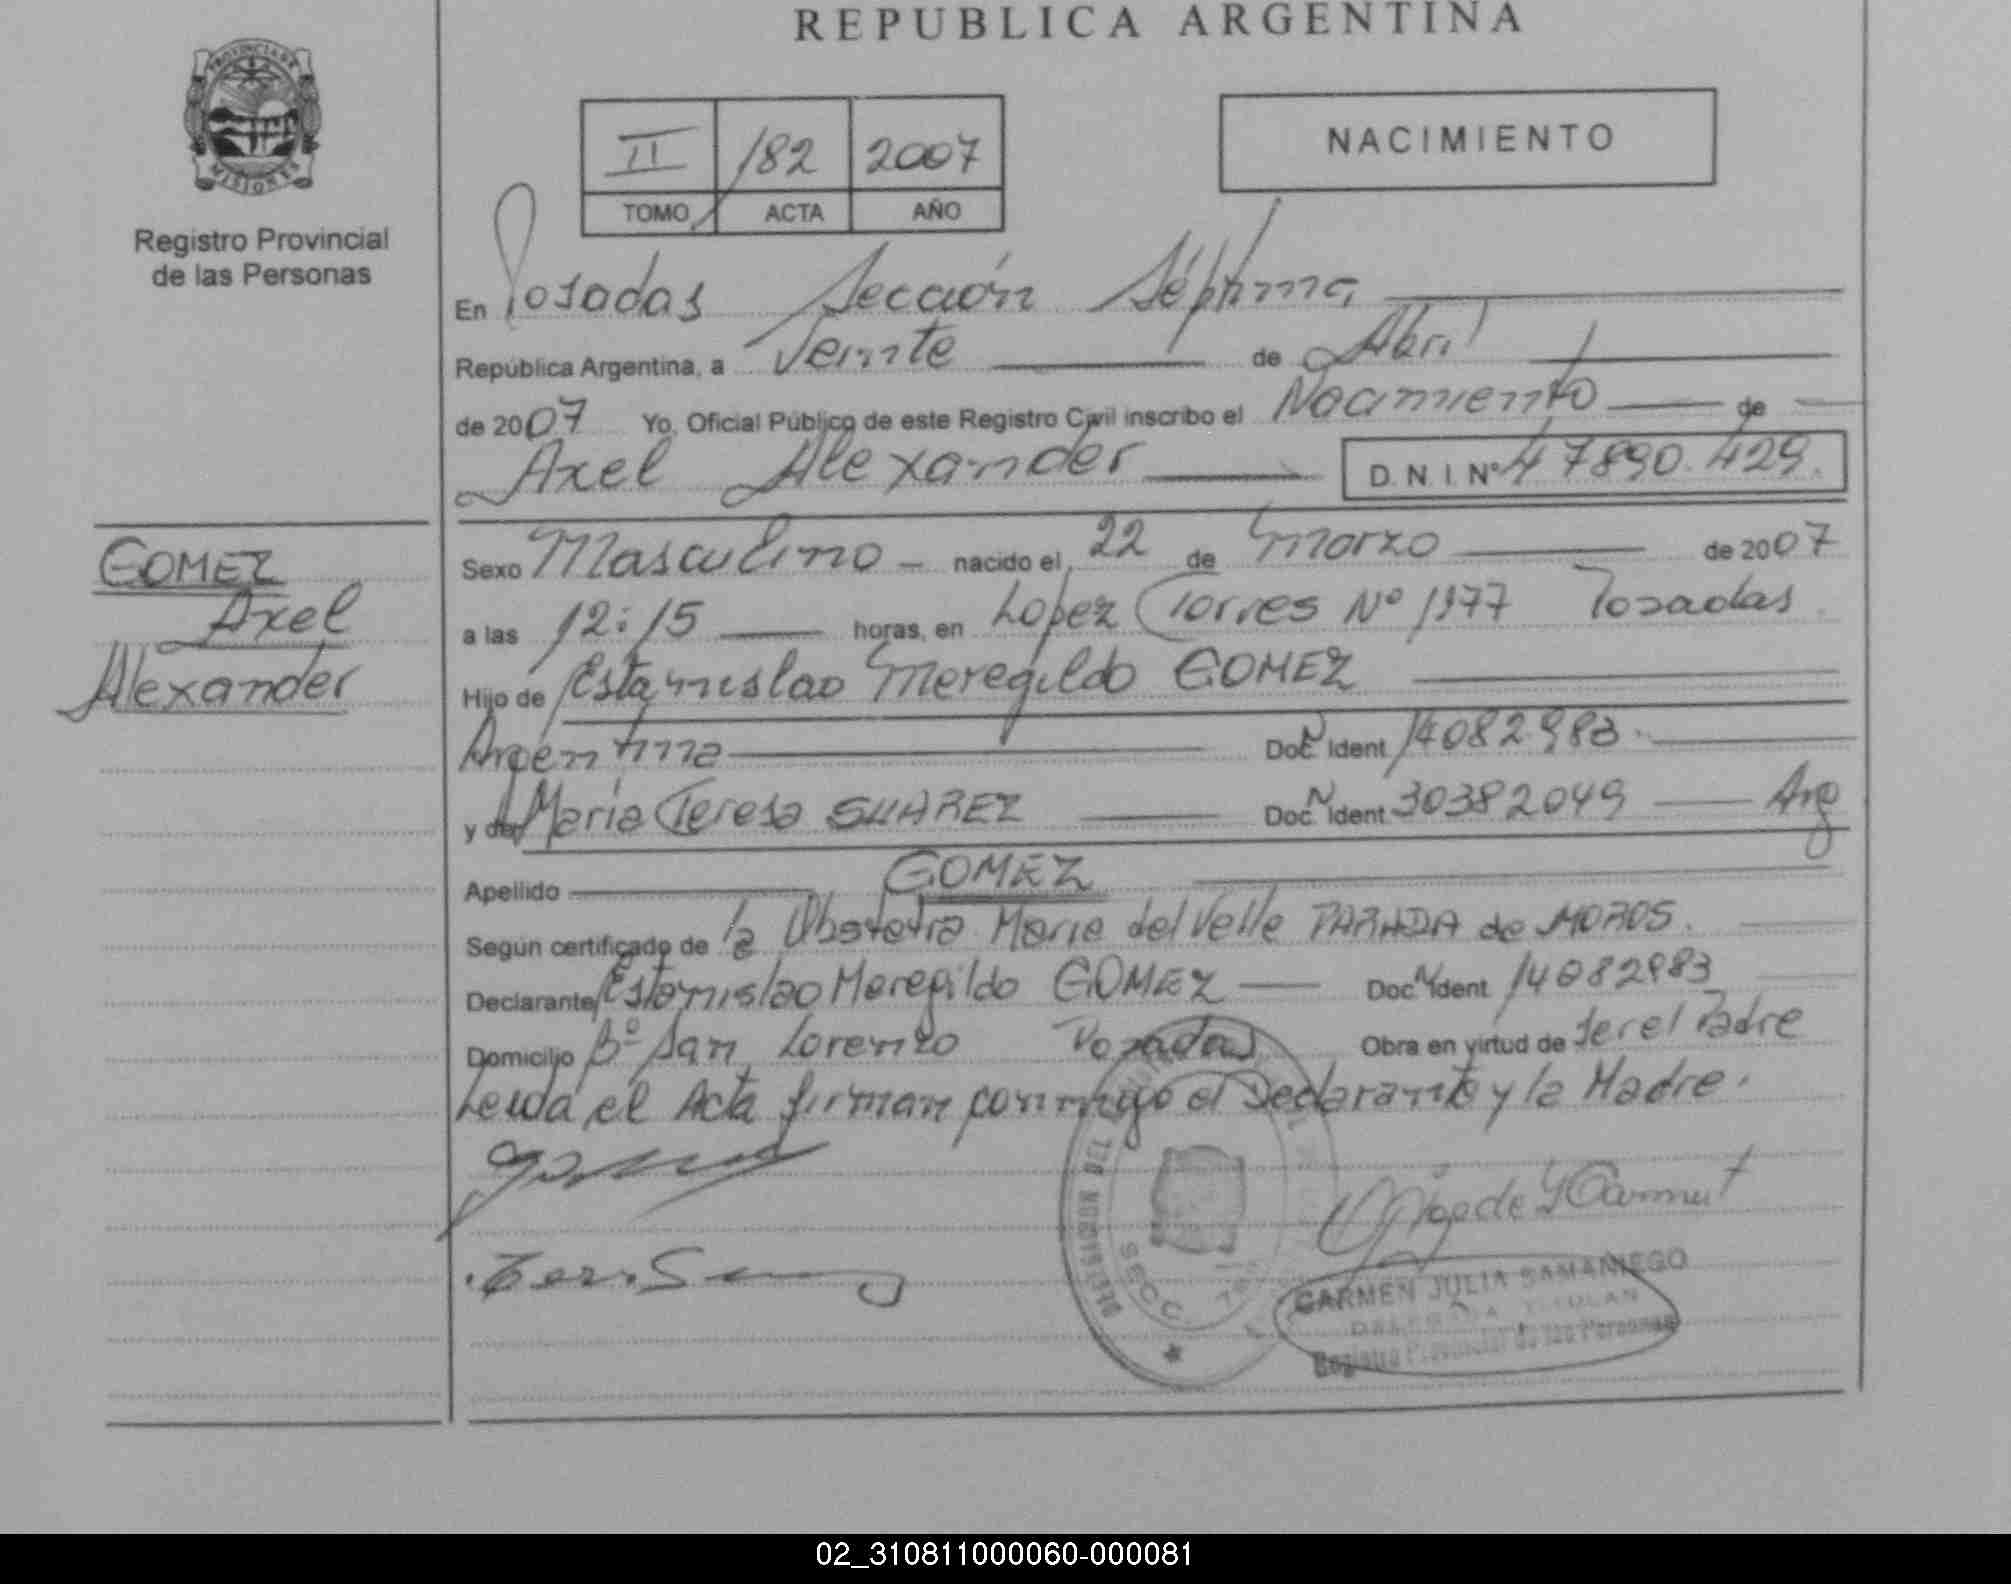 REPUBLICA ARGENTINA
PROVINCIA DE
MISIONES
Registro Provincial
de las Personas
II 182 2007
TOMO ACTA AÑO
NACIMIENTO
En Posadas Sección Séptima
República Argentina, a Veinte de Abril
de 2007 Yo, Oficial Público de este Registro Civil inscribo el Nacimiento de
Axel Alexander D.N.I.Nº 47890.429.
GOMEZ
Axel
Alexander
Sexo Masculino nacido el 22 de Marzo de 2007
a las 12:15 horas, en Lopez Torres Nº 1977 Posadas
Hijo de Estanislao Meregildo GOMEZ
Argentina Doc. Ident 14082.983.
y de María Teresa SUAREZ Doc. Ident 30382049 Arg
Apellido GOMEZ
Según certificado de la Obstetra Maria del Valle PARADA de MOROS.
Declarante Estanislao Meregildo GOMEZ Doc. Ident 14082983
Domicilio Bº San Lorenzo Posadas Obra en virtud de ser el Padre
Leída el Acta firman conmigo el Declarante y la Madre.
SECC.
CARMEN JULIA SAMANIEGO
DELEGADA TITULAR
Registro Provincial de las Personas
02_310811000060-000081